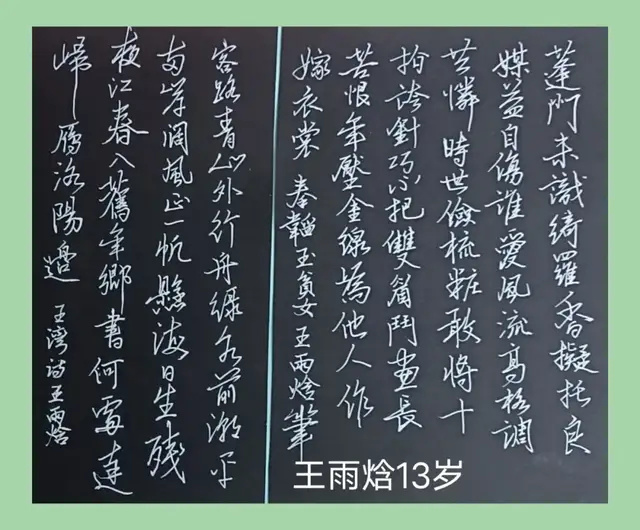 蓬門未識綺羅香擬托良
媒益自傷誰愛風流高格調
共憐時世儉梳粧敢將十
指誇針巧不把雙眉鬥畫長
苦恨年壓金線為他人作
嫁衣裳 秦韜玉貧女 王雨焓筆
客路青山外行舟綠水前潮平
兩岸闊風正一帆懸海日生殘
夜江春入舊年鄉書何處達
歸雁洛陽邊 王灣詩王雨焓
王雨焓13岁